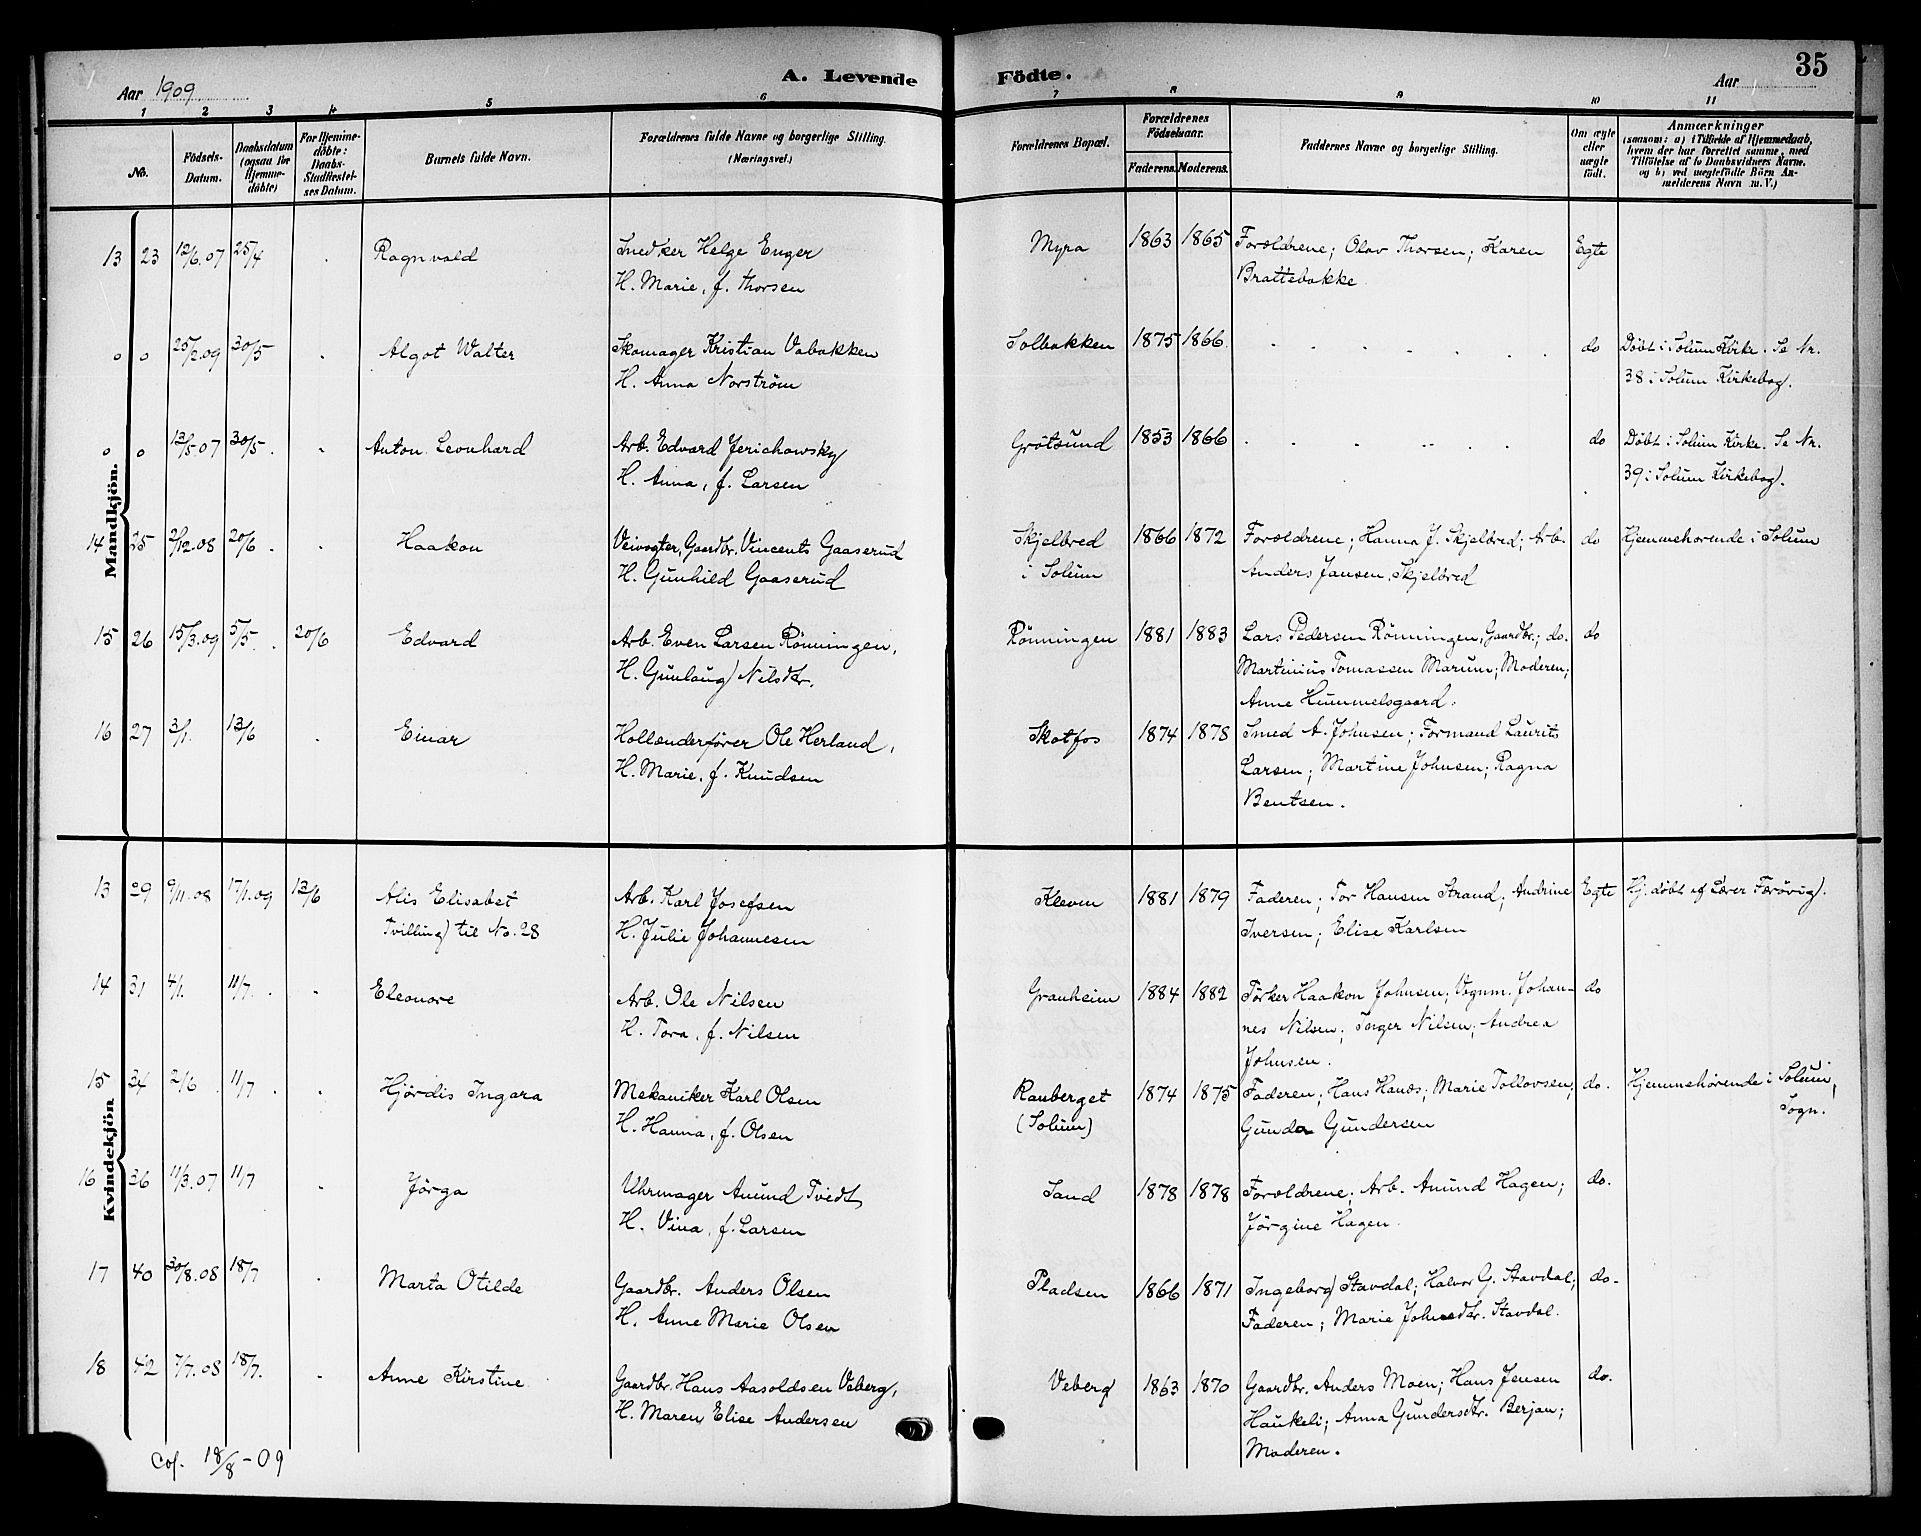 Aar 1909
A. Levende Födte.
Aar
35
1 2 3 4 5 6 7 8 9 10 11
No.
Födsels-Datum.
Daabsdatum (ogsaa for Hjemme-döbte)
For Hjemme-döbte: Daabs-Stadfæstel-ses Datum.
Barnets fulde Navn.
Forældrenes fulde Navne og borgerlige Stilling. (Næringsvei.)
Forældrenes Bopæl.
Forældrenes Födselsaar.
Faderens. Moderens.
Faddernes Navne og borgerlige Stilling.
Om ægte eller uægte födt.
Anmærkninger
(saasom: a) i Tilfælde af Hjemmedaab,
hvem der har forrettet samme, med
Tilföielse af to Daabsvidners Navne.
og b) ved uægtefödte Börn An-
melderens Navn m. V.)
Mandkjön.
13 23 12/6.07 25/4 Ragnvald Snedker Helge Enger Myra 1863 1865 Forældrene; Olav Thorsen; Karen Egte
H. Marie, f. Thorsen Brattebakke
o o 25/2.09 30/5 Algot Walter Skomager Kristian Vabakken Solbakken 1875 1866 do Döbt i Solum Kirke. Se Nr.
H. Anna Norström 38 i Solum Kirkebog.
o o 13/5.07 30/5 Anton Leonhard Arb. Edvard Jerichowsky Grötsund 1853 1866 do Döbt i Solum Kirke. Se Nr.
H. Anna, f. Larsen 39 i Solum Kirkebog.
14 25 2/12.08 20/6 Haakon Veivogter, Gaardbr. Vincents Gaaserud Skjelbred 1866 1872 Forældrene; Hanna J. Skjelbred; Arb. do Hjemmehörende i Solum
H. Gunhild Gaaserud i Solum Anders Jansen, Skjelbred
15 26 15/3.09 5/5 20/6 Edvard Arb. Even Larsen Rönningen, Rönningen 1881 1883 Lars Pedersen Rönningen, Gaardbr.; do. do
H. Gunlaug Nilsdtr. Martinius Tomassen Marum; Moderen;
Anne Hummelsgaard.
16 27 3/1. 13/6 Einar Hollænderförer Ole Herland, Skotfos 1874 1878 Smed A. Johnsen; Formand Laurits
H. Marie, f. Knudsen Larsen; Martine Johnsen; Ragna
Bentsen.
Kvindekjön
13 29 9/11.08 17/1.09 13/6 Alis Elisabet Arb. Karl Josefsen Kleven 1881 1879 Faderen; Tor Hansen Strand; Andrine Egte Hj. döbt af Lærer Færövig.
Tvilling til No. 28 H. Julie Johannesen Iversen; Elise Karlsen
14 31 4/1. 11/7. Eleonore Arb. Ole Nilsen Granheim 1884 1882 Törker Haakon Johnsen; Vognm. Johan- do
H. Tora, f. Nilsen nes Nilsen; Inger Nilsen; Andrea
Johnsen.
15 34 2/6 11/7 Hjördis Ingara Mekaniker Karl Olsen Rauberget 1874 1875 Faderen; Hans Hanás; Marie Tollovsen; do. Hjemmehörende i Solum
H. Hanna, f. Olsen (Solum) Gunda Gundersen Sogn.
16 36 11/3.07 11/7 Jörga Uhrmager Amund Tvedt Sand 1878 1878 Forældrene; Arb. Amund Hagen; do.
H. Vina, f. Larsen Jörgine Hagen.
17 40 30/8.08 18/7 Marta Otilde Gaardbr. Anders Olsen Pladsen 1866 1871 Ingeborg Stavdal; Halvor G. Stavdal; do.
H. Anne Marie Olsen Faderen; Marie Johnsdtr. Stavdal.
18 42 7/7.08 18/7. Anne Kirstine Gaardbr. Hans Aasoldsen Veberg, Veberg 1863 1870 Gaardbr. Anders Moen; Hans Jensen do.
H. Maren Elise Andersen Haukeli; Anna Gundersdtr. Berjan;
Moderen.
Cof. 18/8-09